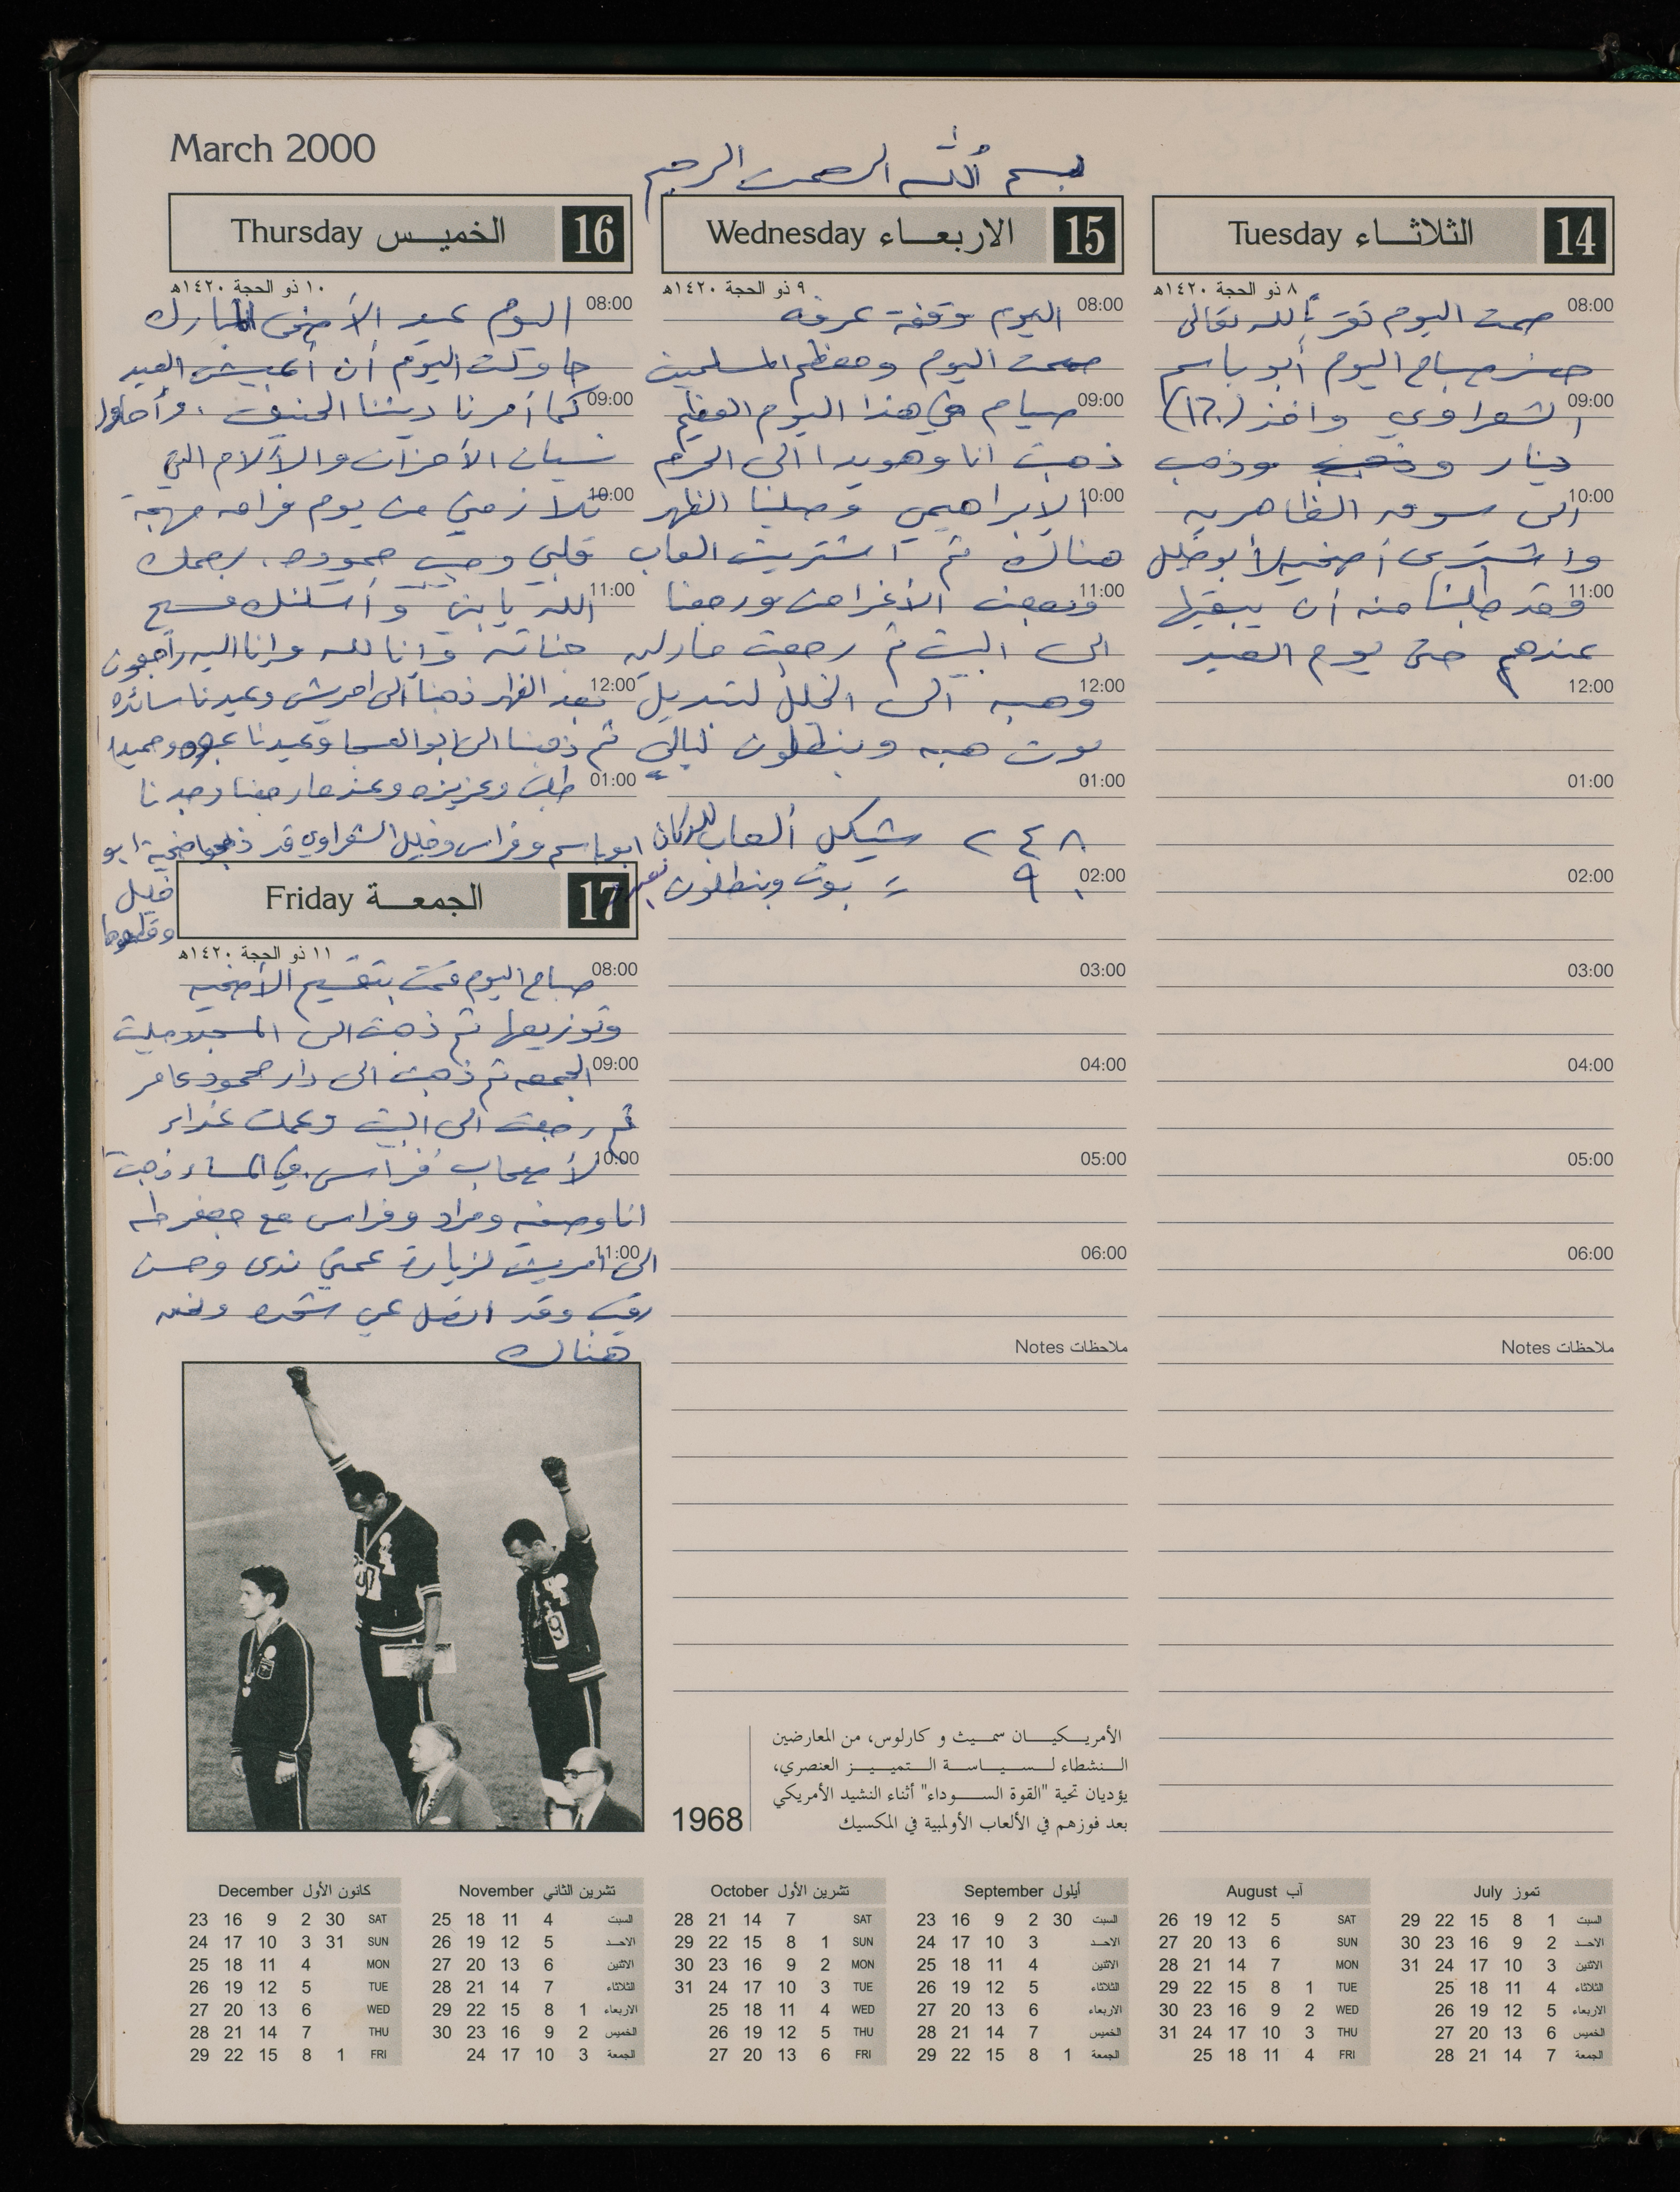 March 2000
بسم الله الرحمن الرحيم
14 الثلاثاء Tuesday
٨ ذو الحجة ١٤٢٠هـ
08:00 صمت اليوم تقرباً لله تعالى
حضر صباح اليوم أبو باسم
09:00 الشعراوي وأخذ (١٢٠)
دينار وذهب
10:00 الى سوق الظاهريه
واشترى أضحيه لأبو خليل
11:00 وقد طلبنا منه أن يبقيها
عندهم حتى يوم العيد
12:00
01:00
02:00
03:00
04:00
05:00
06:00
ملاحظات Notes
15 الاربعاء Wednesday
٩ ذو الحجة ١٤٢٠هـ
08:00 اليوم وقفة عرفه
صمت اليوم ومعظم المسلمين
09:00 صيام في هذا اليوم العظيم
ذهبت انا وهويدا الى الحرم
10:00 الإبراهيمي وصلينا الظهر
هناك ثم اشتريت العاب
11:00 وبعض الأغراض ورجعنا
الى البيت ثم رجعت
12:00 وهبه الى الخليل لتبديل
بوت هبه وبنطلون
01:00
٢٤٨ شيكل ألعاب للدكان
02:00 ٩٠ = بوت وبنطلون
03:00
04:00
05:00
06:00
ملاحظات Notes
16 الخميس Thursday
١٠ ذو الحجة ١٤٢٠هـ
08:00 اليوم عيد الأضحى المبارك
حاولت اليوم أن أعيش العيد
09:00 كما أمرنا ديننا الحنيف وأحاول
نسيان الأحزان والآلام التي
10:00 تلازمني من يوم فراق مهجة
قلبي وحبي حموده. رحمك
11:00 الله يا بني وأسكنك فسيح
جناته وانا لله وانا اليه راجعون
12:00 بعد الظهر ذهبنا الى امريش وعيدنا
ثم ذهبنا الى ابو العسجا وعيدنا
01:00 وعزيزه وعندما رجعنا وجدنا
ابو باسم وفراس وخليل الشعراوي قد ذبحوا اضحية ابو
خليل
وقطعوها
17 الجمعة Friday
١١ ذو الحجة ١٤٢٠هـ
08:00 صباح اليوم قمت بتقسيم الأضحيه
وتوزيعها ثم ذهبت الى المسجد وصليت
09:00 الجمعه ثم ذهبت الى دار محمود عامر
ثم رجعت الى البيت وعملت غداء
10:00 لأصحاب فراس. في المساء ذهبت
انا وصفيه ومراد وفراس مع جعفر طه
11:00 الى امريش لزيارة عمتي ندى وحسن
وقد اتصل
هناك
1968
الأمريكيان سميث و كارلوس، من المعارضين
النشطاء لسياسة التمييز العنصري،
يؤديان تحية "القوة السوداء" أثناء النشيد الأمريكي
بعد فوزهم في الألعاب الأولمبية في المكسيك
تموز July
29 22 15 8 1 السبت
30 23 16 9 2 الاحد
31 24 17 10 3 الاثنين
25 18 11 4 الثلاثاء
26 19 12 5 الاربعاء
27 20 13 6 الخميس
28 21 14 7 الجمعة
آب August
26 19 12 5 SAT
27 20 13 6 SUN
28 21 14 7 MON
29 22 15 8 1 TUE
30 23 16 9 2 WED
31 24 17 10 3 THU
25 18 11 4 FRI
أيلول September
23 16 9 2 30 السبت
24 17 10 3 الاحد
25 18 11 4 الاثنين
26 19 12 5 الثلاثاء
27 20 13 6 الاربعاء
28 21 14 7 الخميس
29 22 15 8 1 الجمعة
تشرين الأول October
28 21 14 7 SAT
29 22 15 8 1 SUN
30 23 16 9 2 MON
31 24 17 10 3 TUE
25 18 11 4 WED
26 19 12 5 THU
27 20 13 6 FRI
تشرين الثاني November
25 18 11 4 السبت
26 19 12 5 الاحد
27 20 13 6 الاثنين
28 21 14 7 الثلاثاء
29 22 15 8 1 الاربعاء
30 23 16 9 2 الخميس
24 17 10 3 الجمعة
كانون الأول December
23 16 9 2 30 SAT
24 17 10 3 31 SUN
25 18 11 4 MON
26 19 12 5 TUE
27 20 13 6 WED
28 21 14 7 THU
29 22 15 8 1 FRI